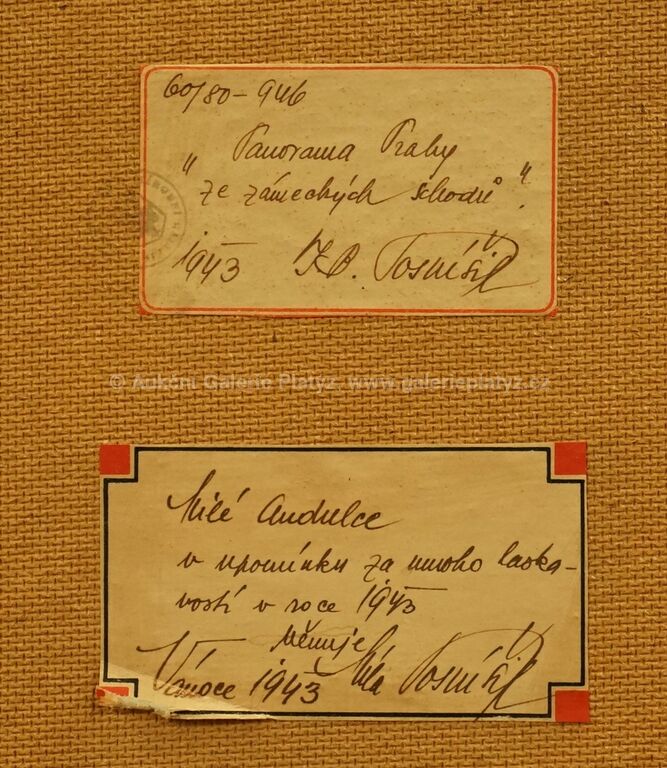 60/80-946
„Panorama Prahy
ze zámeckých schodů“.
1943 Pospíšil
© Aukční Galerie Platýz, www.galerieplatyz.cz
Milé Andulce
v upomínku za mnoho laska-
vostí v roce 1943
věnuje
Vánoce 1943 Pospíšil